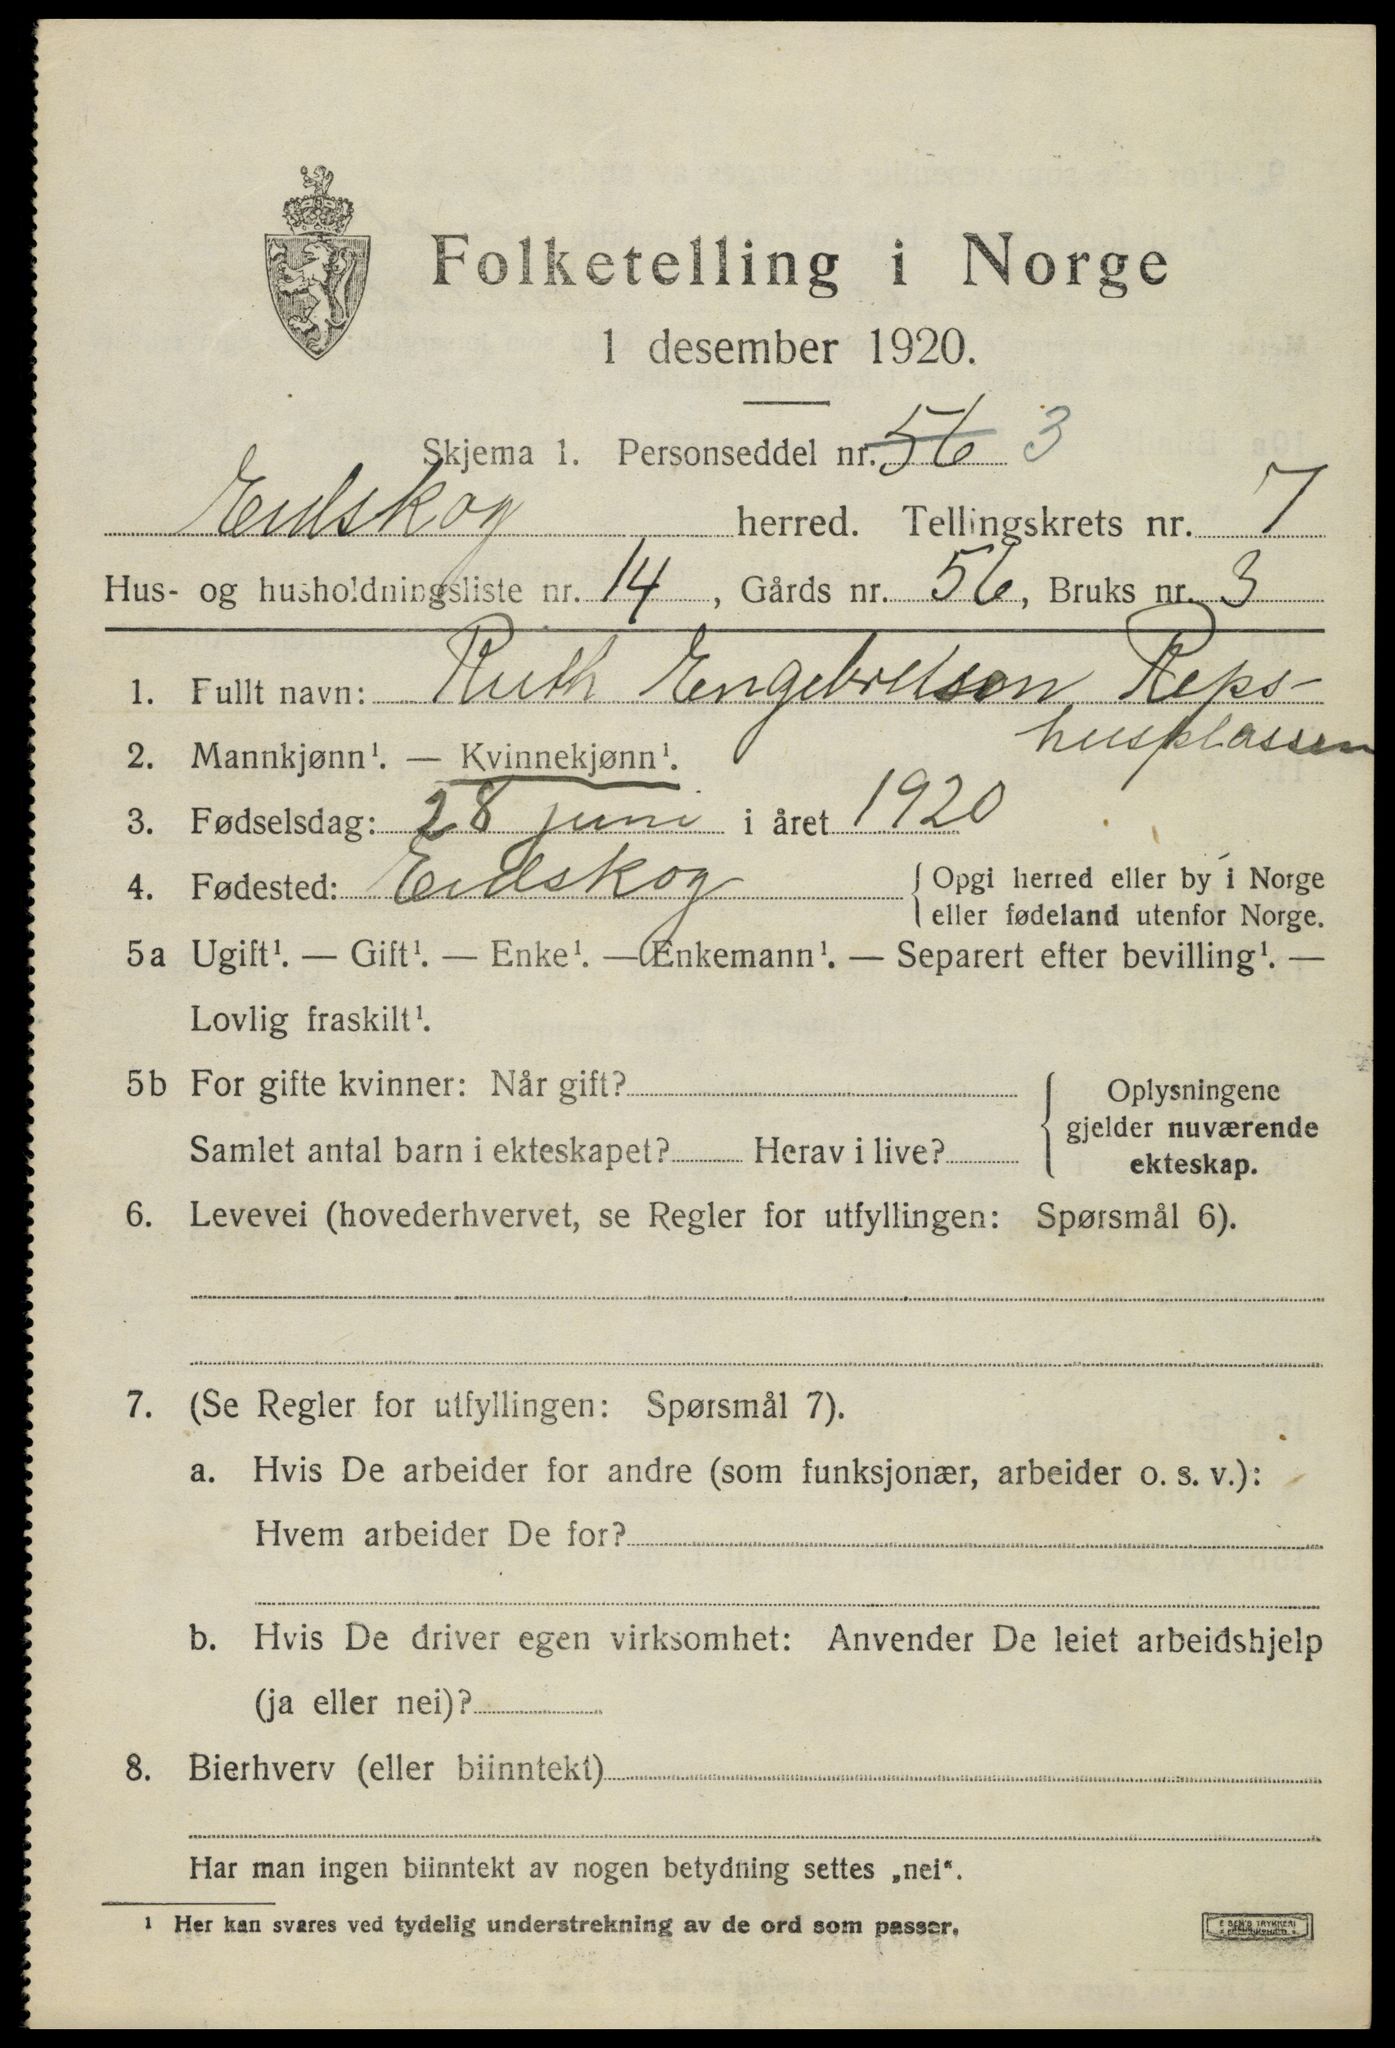 Folketelling i Norge
1 desember 1920.
Skjema 1. Personseddel nr. 56 3
Eidskog herred. Tellingskrets nr. 7
Hus- og husholdningsliste nr. 14, Gårds nr. 56, Bruks nr. 3
1. Fullt navn: Ruth Engebretson Reps-
husplassen
2. Mannkjønn¹. — Kvinnekjønn¹.
3. Fødselsdag: 28 juni i året 1920
4. Fødested: Eidskog { Opgi herred eller by i Norge
eller fødeland utenfor Norge.
5a Ugift¹. — Gift¹. — Enke¹. — Enkemann¹. — Separert efter bevilling¹. —
Lovlig fraskilt¹.
5b For gifte kvinner: Når gift? { Oplysningene
gjelder nuværende
Samlet antal barn i ekteskapet? Herav i live? ekteskap.
6. Levevei (hovederhvervet, se Regler for utfyllingen: Spørsmål 6).
7. (Se Regler for utfyllingen: Spørsmål 7).
a. Hvis De arbeider for andre (som funksjonær, arbeider o. s. v.):
Hvem arbeider De for?
b. Hvis De driver egen virksomhet: Anvender De leiet arbeidshjelp
(ja eller nei)?
8. Bierhverv (eller biinntekt)
Har man ingen biinntekt av nogen betydning settes „nei“.
¹ Her kan svares ved tydelig understrekning av de ord som passer.